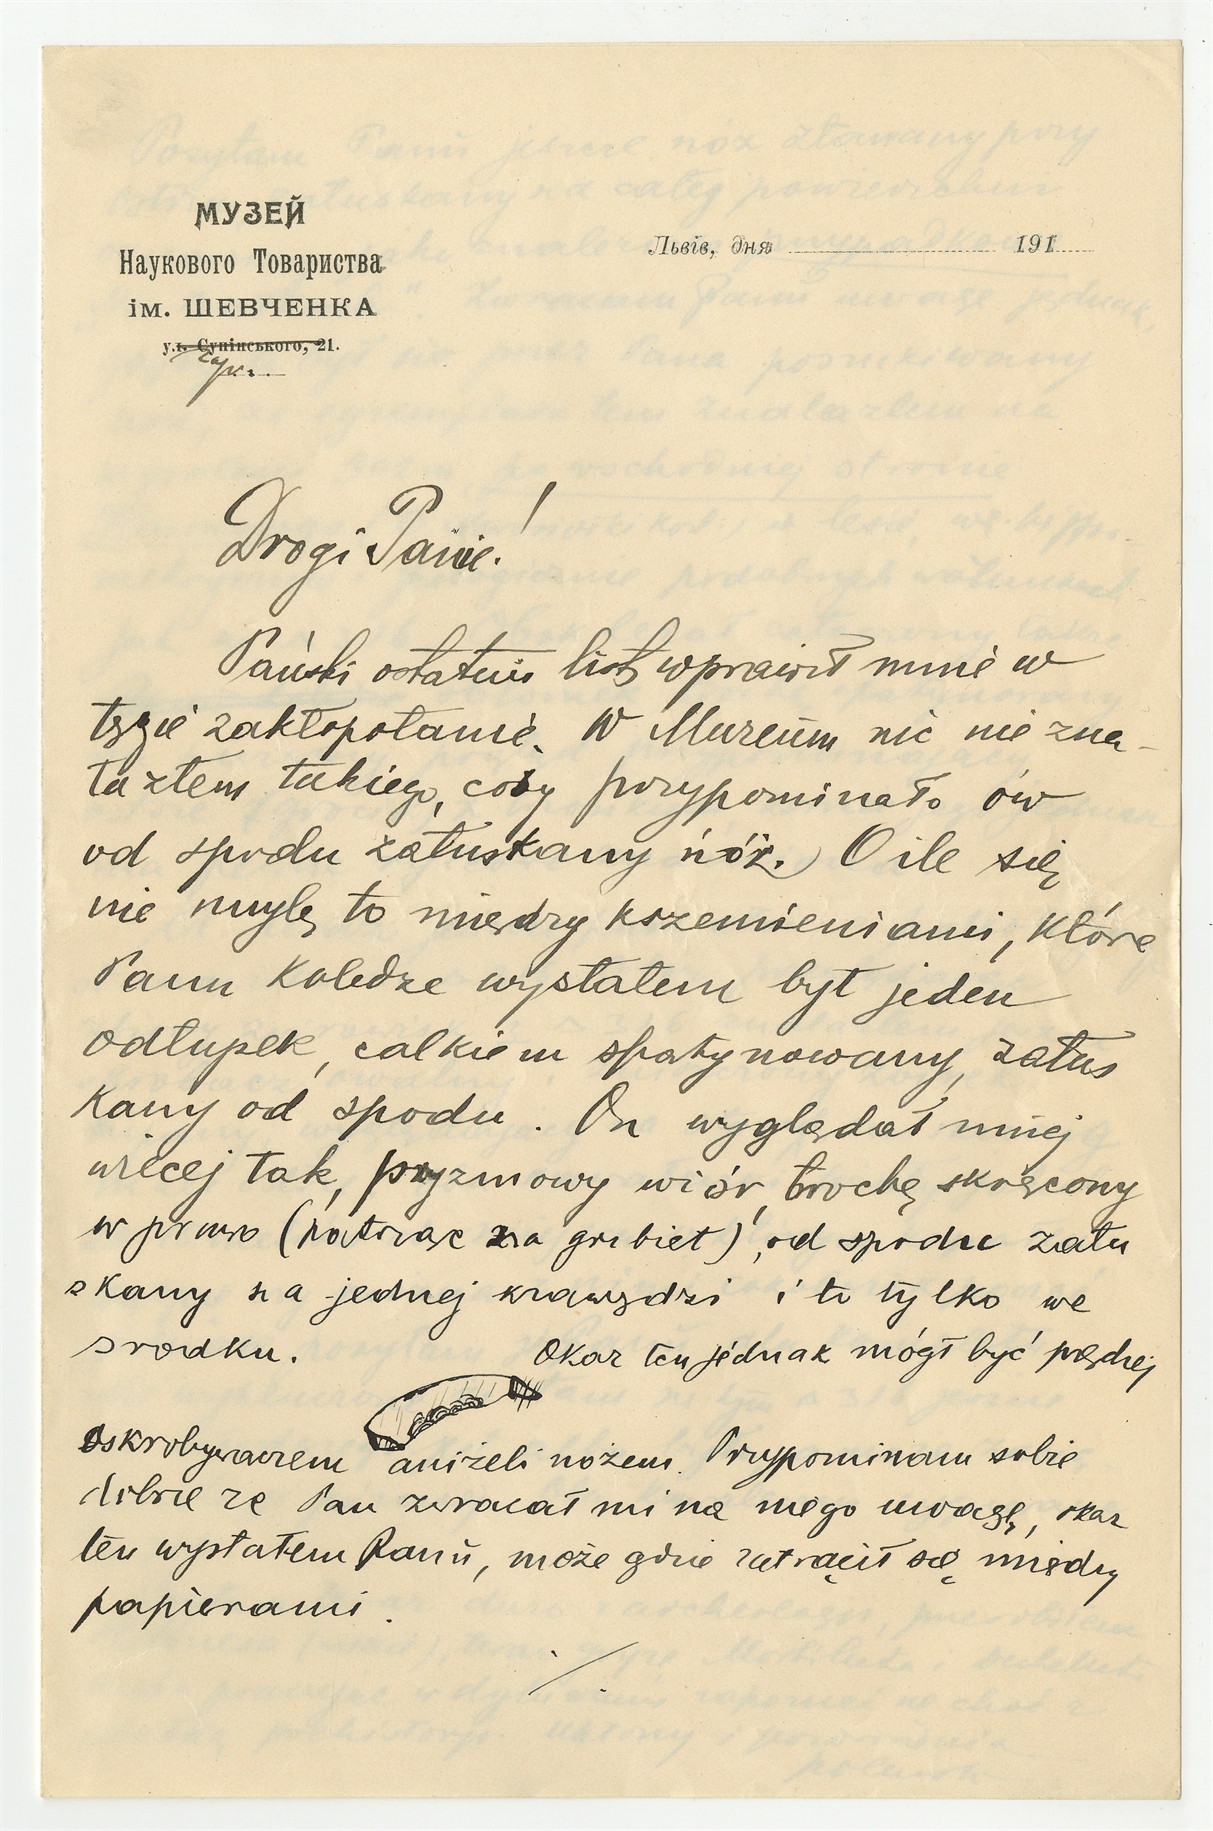 МУЗЕЙ
Наукового Товариства
ім. ШЕВЧЕНКА
ул. Супінського, 21.
Львів, дня 191
Drogi Panie!
Pański ostatni list wprawił mnie w
zakłopotanie. W Muzeum nic nie zna-
lazłem takiego, coby przypominało ów
od spodu załuskany nóż. O ile się
nie mylę to między krzemieniami, które
Panu Koledze wysłałem był jeden
odłupek, całkiem spatynowany, załus
kany od spodu. On wyglądał mniej
więcej tak, pryzmowy wiór, trochę skręcony
w prawo (patrząc na grzbiet), od spodu zału
skany na jednej krawędzi i to tylko we
srodku. Okaz ten jednak mógł być prędzej
oskrobywaczem aniżeli nożem. Przypominam sobie
dobrze że Pan zwracał mi na niego uwagę, okaz
ten wysłałem Panu, może gdzie zatracił się między
papierami.